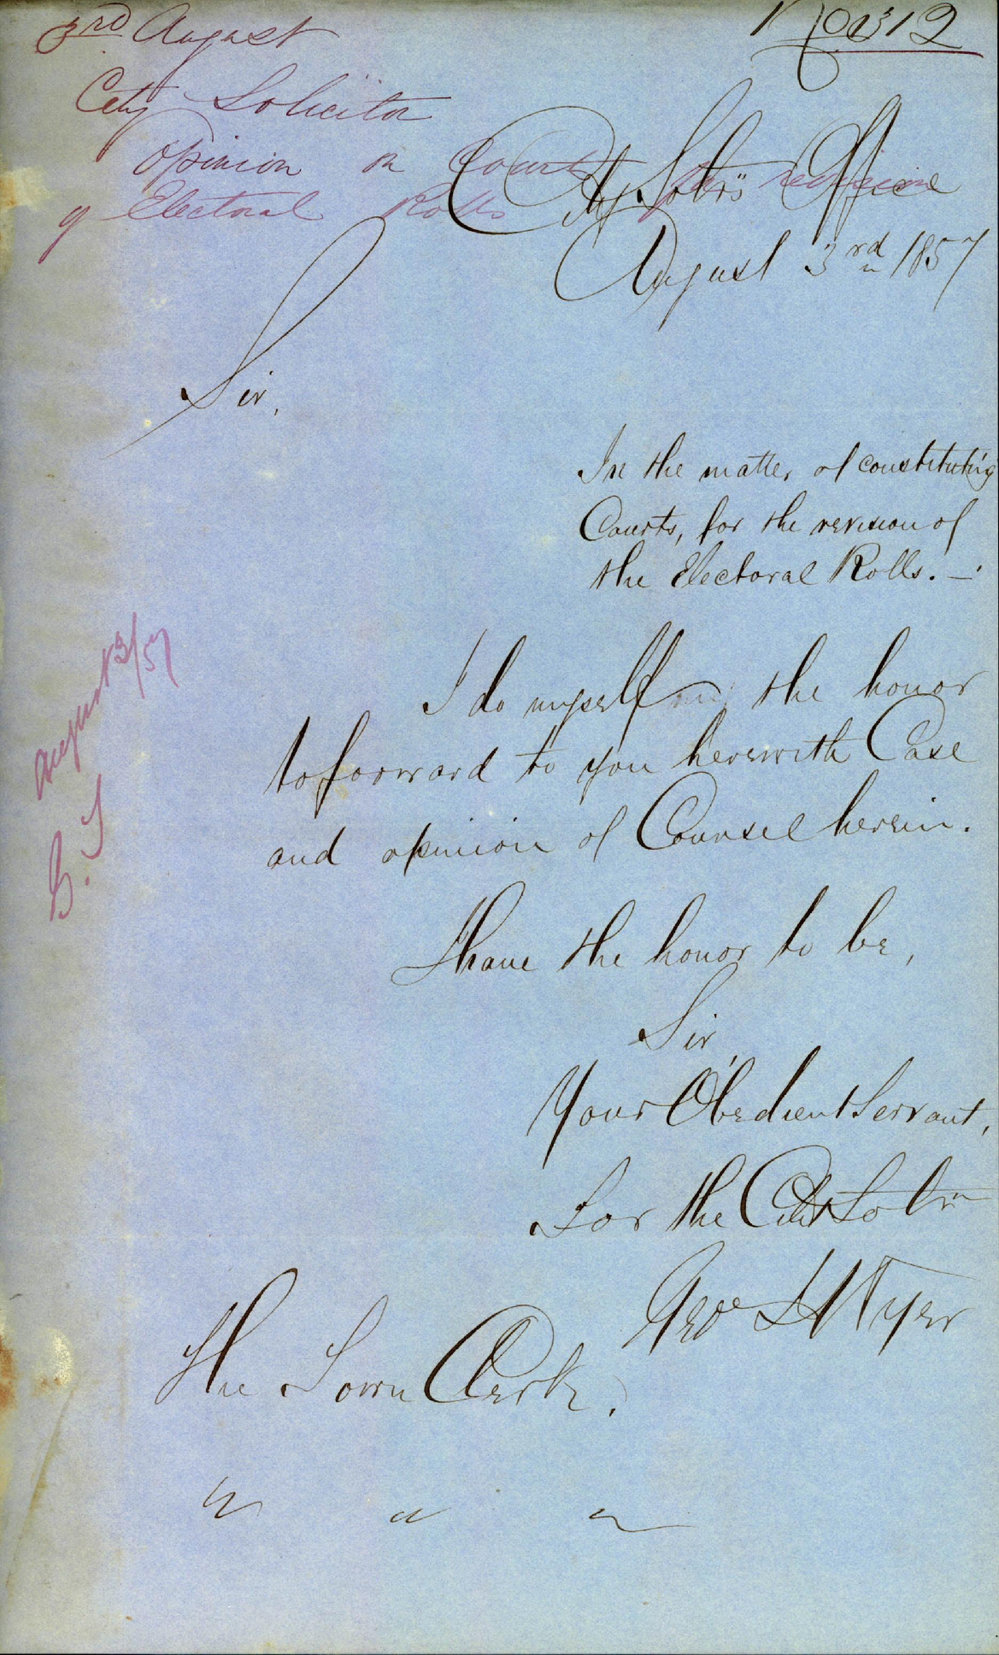 3rd August
City Solicitor
Opinion on Courts for revision
of Electoral Rolls
City Solrs Office
August 3rd 1857
Sir,
In the matter of constituting
Courts, for the revision of
the Electoral Rolls. —
I do myself the honor
to forward to you herewith Case
and opinion of Counsel herein.
August 3/57
I have the honor to be,
Sir
Your Obedient Servant,
For the City Solr
Geo H
The Town Clerk.
" " "